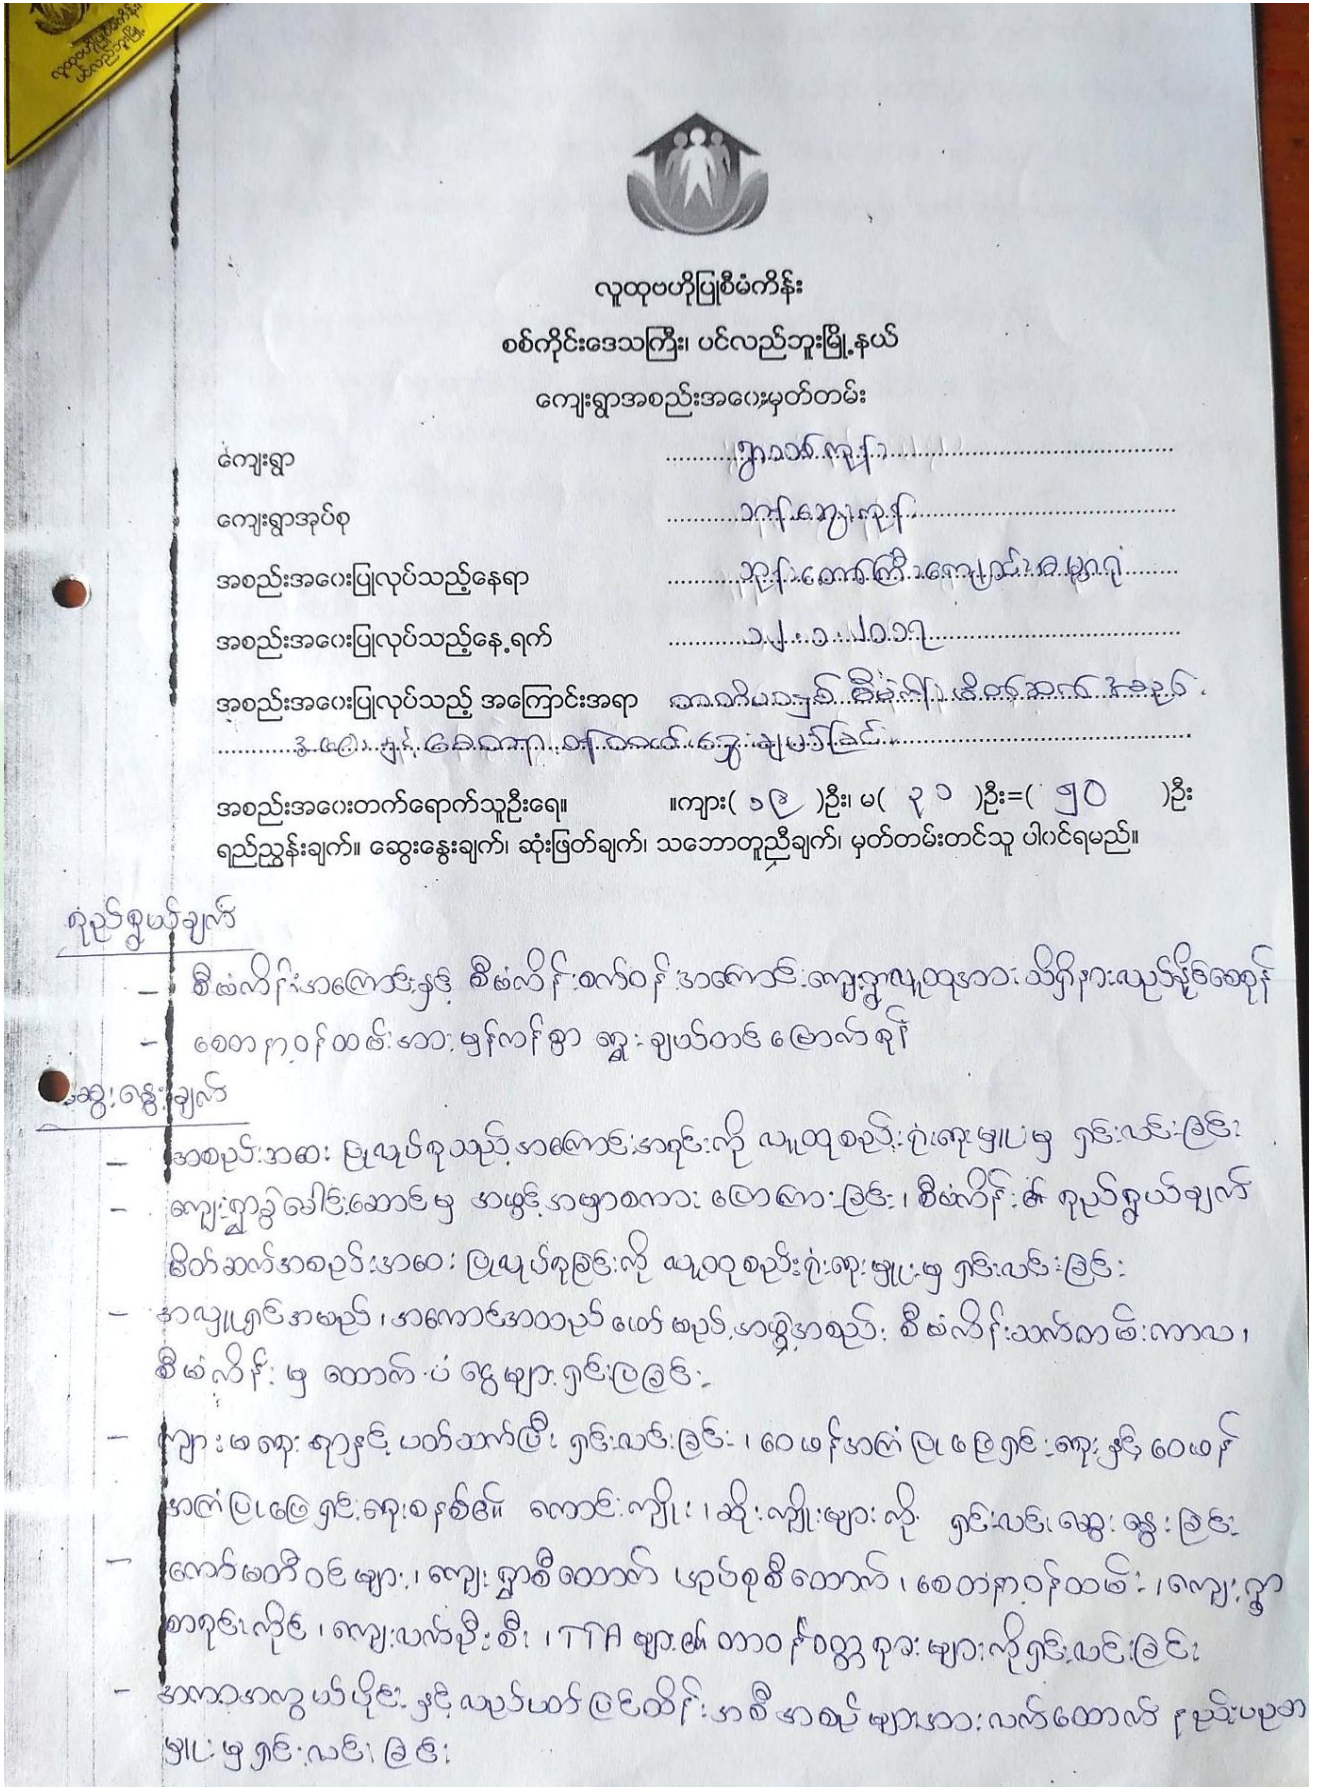 လူထုဗဟိုပြုစီမံကိန်း
ပင်လည်ဘူးမြို့
လူထုဗဟိုပြုစီမံကိန်း
စစ်ကိုင်းဒေသကြီး၊ ပင်လည်ဘူးမြို့နယ်
ကျေးရွာအစည်းအဝေးမှတ်တမ်း
ကျေးရွာ ရွာသစ်ကုန်း
ကျေးရွာအုပ်စု
အစည်းအဝေးပြုလုပ်သည့်နေရာ ဘုန်းတော်ကြီးကျောင်းဓမ္မာရုံ
အစည်းအဝေးပြုလုပ်သည့်နေ့ရက် ၁၂.၁.၂၀၁၇
အစည်းအဝေးပြုလုပ်သည့် အကြောင်းအရာ တတိယနှစ် စီမံကိန်း မိတ်ဆက် အစည်း
အဝေး နှင့် စေတနာ့ဝန်ထမ်း ရွေးချယ်ခြင်း
အစည်းအဝေးတက်ရောက်သူဦးရေ။ ။ကျား( ၁၉ )ဦး၊ မ( ၃၁ )ဦး=( ၅၀ )ဦး
ရည်ညွှန်းချက်။ ဆွေးနွေးချက်၊ ဆုံးဖြတ်ချက်၊ သဘောတူညီချက်၊ မှတ်တမ်းတင်သူ ပါဝင်ရမည်။
ရည်ရွယ်ချက်
- စီမံကိန်းအကြောင်းနှင့် စီမံကိန်းစက်ဝန်းအကြောင်းကျေးရွာလူထုအား သိရှိနားလည်နိုင်စေရန်
- စေတနာ့ဝန်ထမ်းအား မှန်ကန်စွာ ရွေးချယ်တင်မြှောက်ရန်
ဆွေးနွေးချက်
- အစည်းအဝေး ပြုလုပ်ရသည့်အကြောင်းအရင်းကို လူထုစည်းရုံးရေးမှူးမှ ရှင်းလင်းခြင်း
- ကျေးရွာခေါင်းဆောင်မှ အဖွင့်အမှာစကား ပြောကြားခြင်း၊ စီမံကိန်း၏ ရည်ရွယ်ချက်
မိတ်ဆက်အစည်းအဝေး ပြုလုပ်ရခြင်းကို လူထုစည်းရုံးရေးမှူးမှ ရှင်းလင်းခြင်း
- အလှူရှင်အမည်၊ အကောင်အထည်ဖော်မည့်အဖွဲ့အစည်း စီမံကိန်းသက်တမ်းကာလ၊
စီမံကိန်းမှ ထောက်ပံ့ငွေများရှင်းပြခြင်း
- ကျားမရေးရာနှင့်ပတ်သက်ပြီး ရှင်းလင်းခြင်း၊ ဝေဖန်အကြံပြုဖြေရှင်းရေးနှင့် ဝေဖန်
အကြံပြုဖြေရှင်းရေးစနစ်၏ ကောင်းကျိုး၊ ဆိုးကျိုးများကို ရှင်းလင်းဆွေးနွေးခြင်း
- ကော်မတီဝင်များ၊ ကျေးရွာစီထောက် အုပ်စုစီထောက်၊ စေတနာ့ဝန်ထမ်း၊ ကျေးရွာ
စာရင်းကိုင်၊ ကျေးလက်ဦးစီး၊ TTA များ၏ တာဝန်ဝတ္တရားများကိုရှင်းလင်းခြင်း
- အကာအကွယ်ပိုင်းနှင့် လည်ပတ်ပြင်ထိန်းအစီအစဉ်များအား လက်ထောက် နည်းပညာ
မှူးမှ ရှင်းလင်းခြင်း